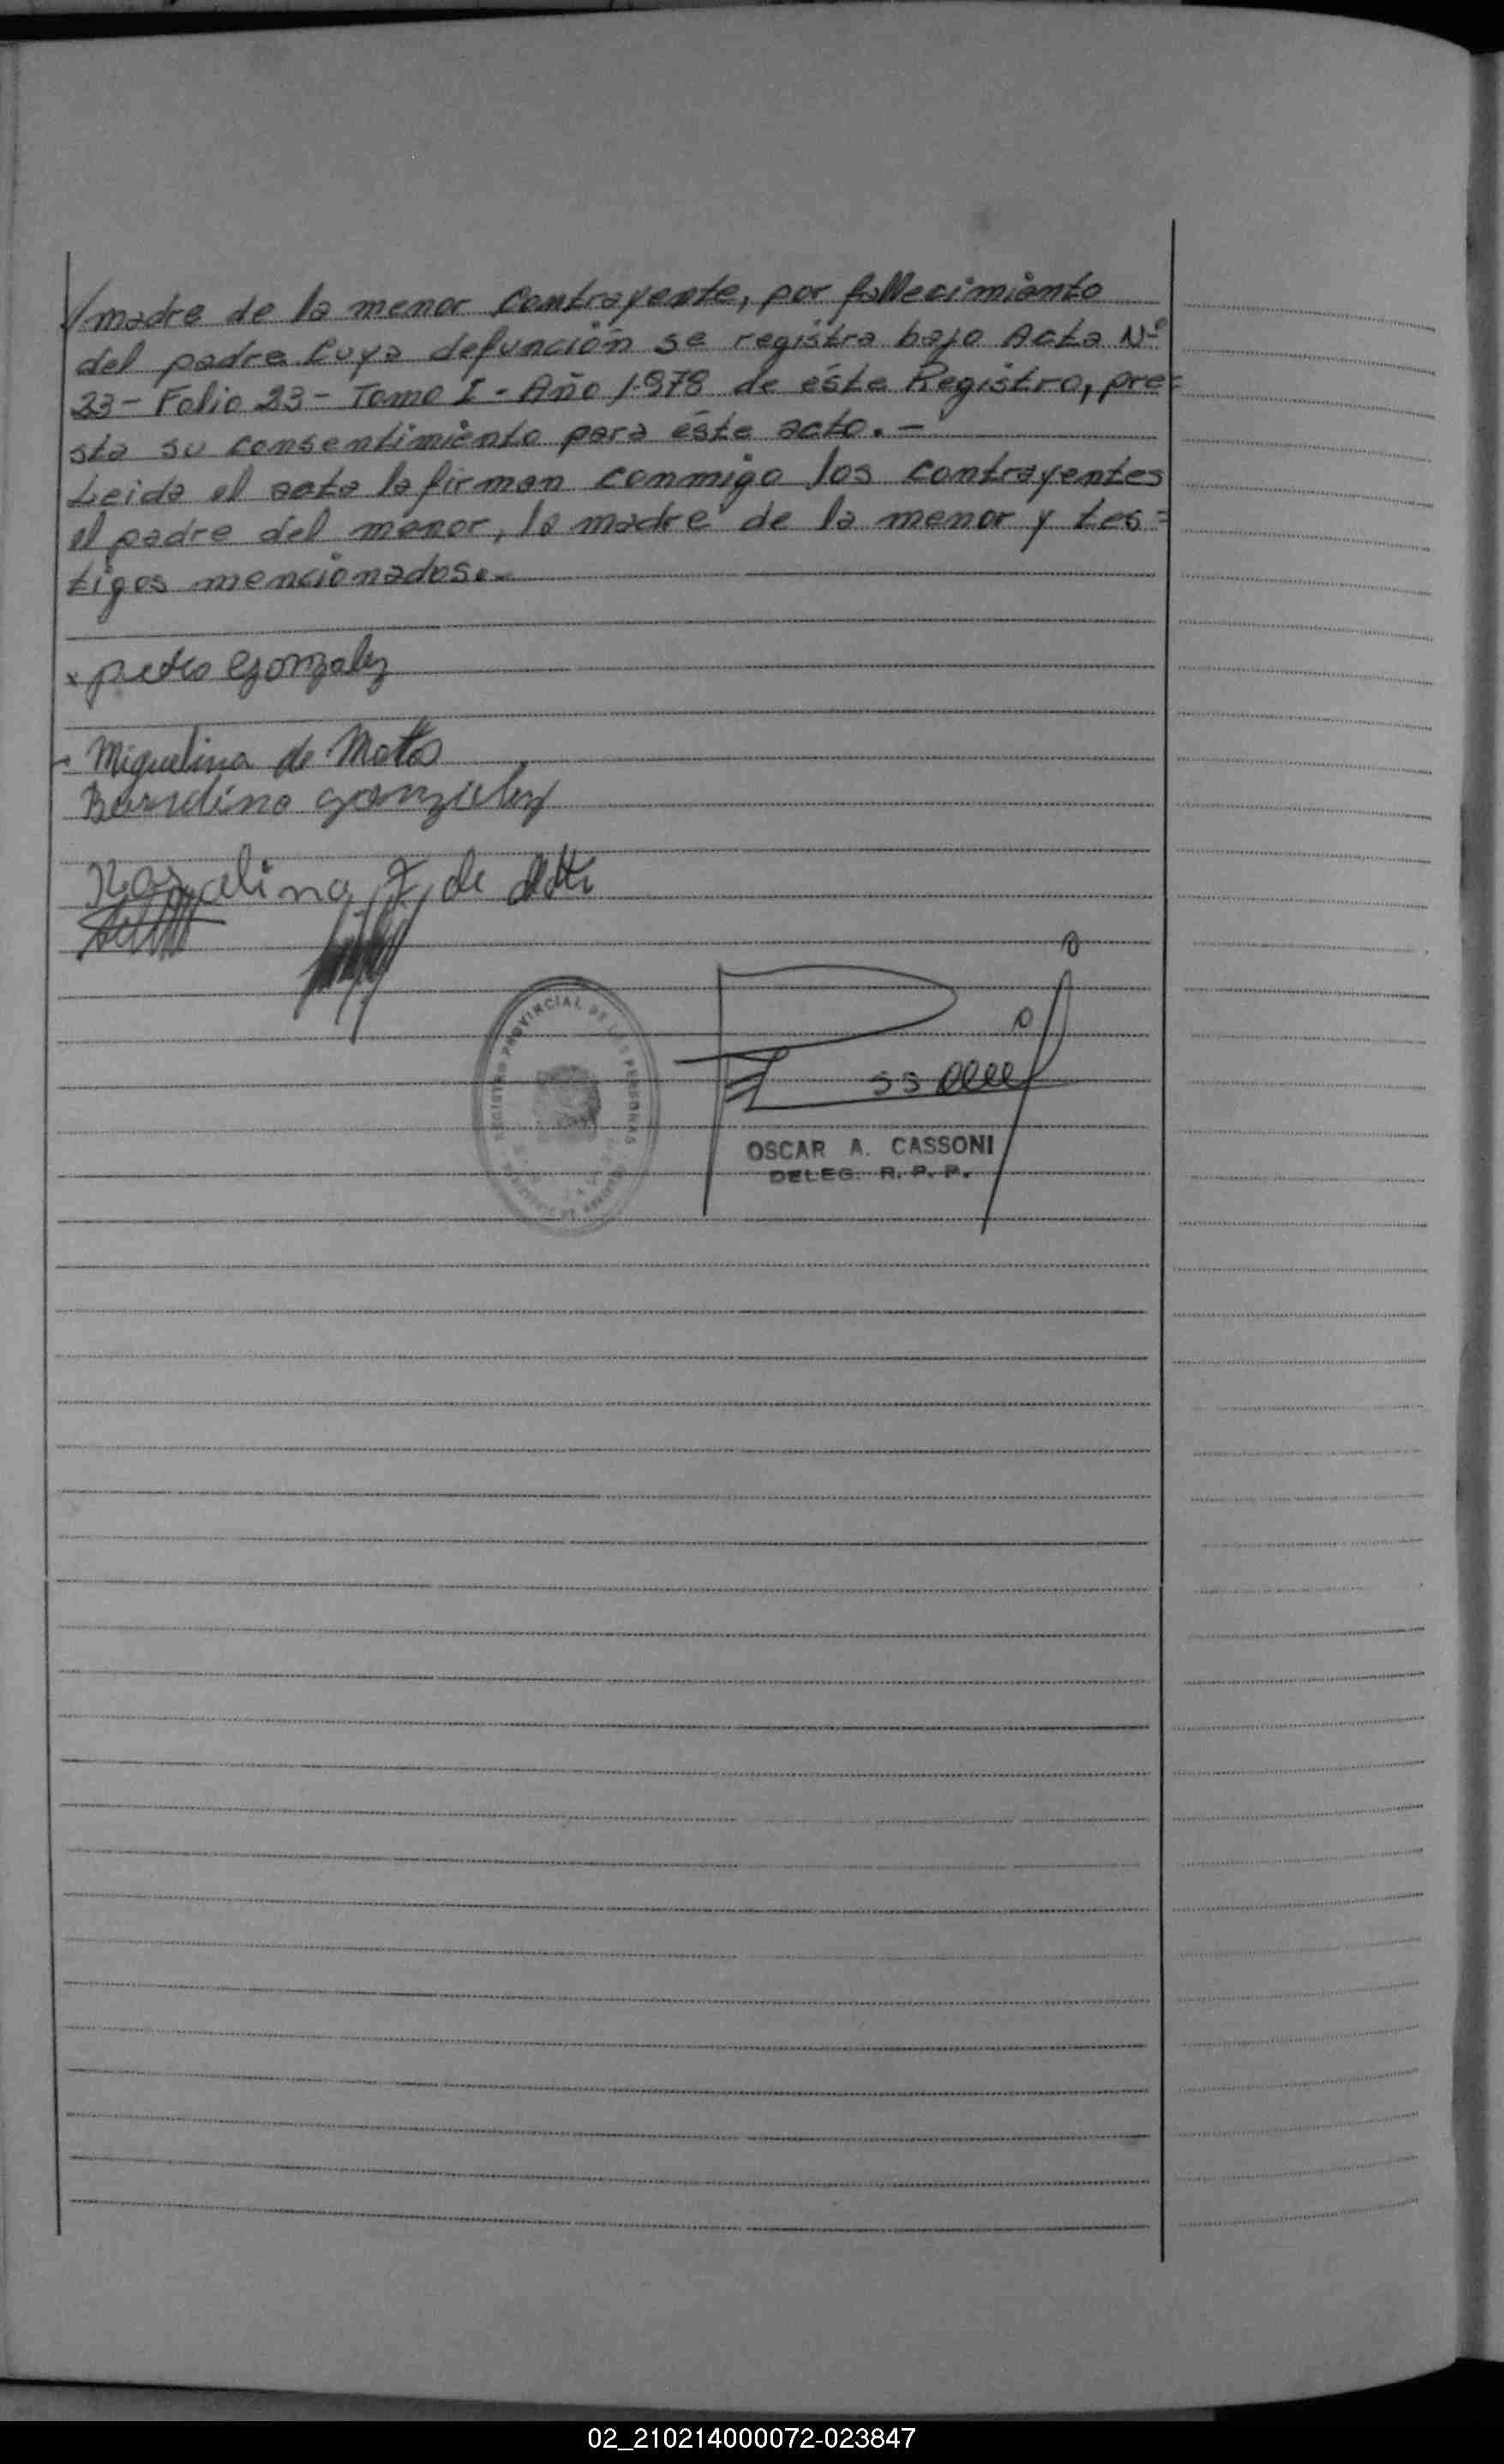 madre de la menor contrayente, por fallecimiento
del padre cuya defunción se registra bajo Acta Nº
23- Folio 23- Tomo I- Año 1.978 de éste Registro, pre=
sta su consentimiento para éste acto.-
Leida el acta la firman conmigo los contrayentes
el padre del menor, la madre de la menor y tes=
tigos mencionados.-
x pedro Gonzalez
Miguelina de Matos
Bernardino gonzalez
de
REGISTRO PROVINCIAL DE LAS PERSONAS
OSCAR A. CASSONI
DELEG. R. P. P.
02_210214000072-023847